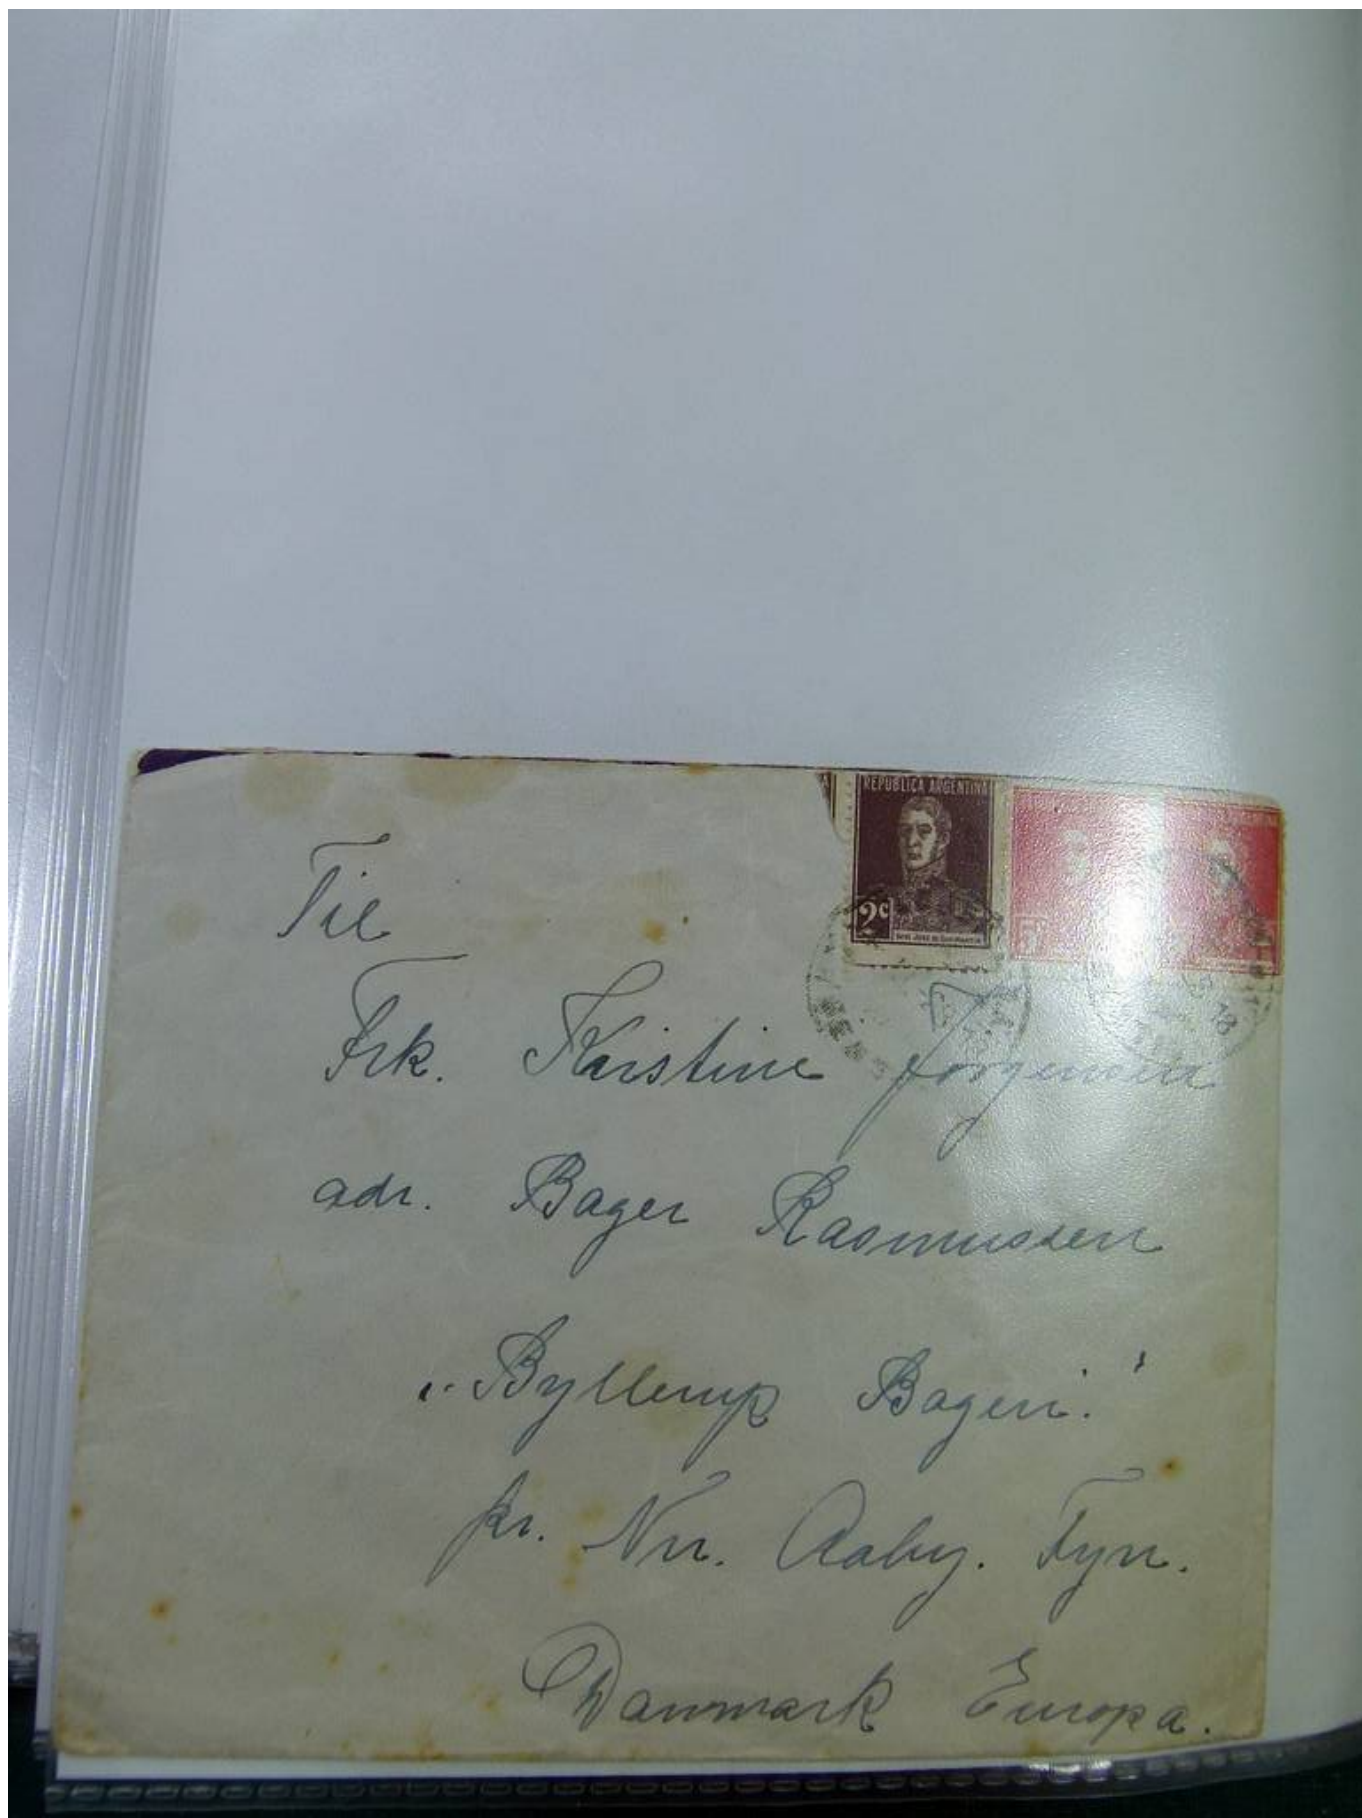 REPUBLICA ARGENTINA
2c
GRAL JOSÉ DE SAN MARTIN
Til
Frk. Kristine Jørgensen
adr. Bager Rasmussen
„Byllerup Bageri."
pr. Nr. Aaby. Fyn.
Danmark Europa.